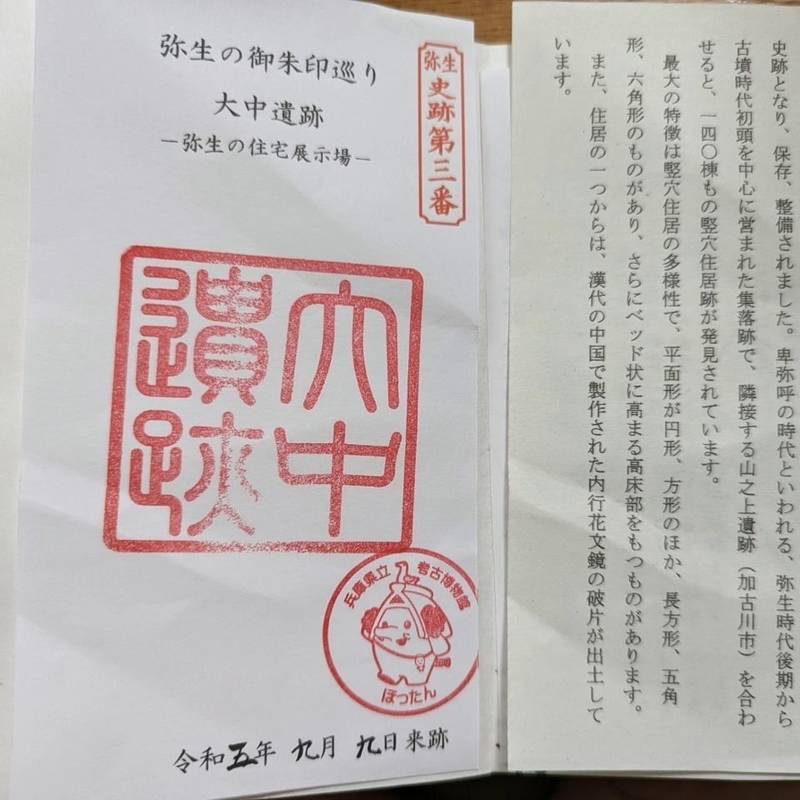 弥生の御朱印巡り
大中遺跡
―弥生の住宅展示場―
弥生
史跡第三番
大中
遺跡
兵庫県立考古博物館
ほったん
令和五年 九月 九日来跡
史跡となり、保存、整備されました。卑弥呼の時代といわれる、弥生時代後期から
古墳時代初頭を中心に営まれた集落跡で、隣接する山之上遺跡（加古川市）を合わ
せると、一四〇棟もの竪穴住居跡が発見されています。
最大の特徴は竪穴住居の多様性で、平面形が円形、方形のほか、長方形、五角
形、六角形のものがあり、さらにベッド状に高まる高床部をもつものがあります。
また、住居の一つからは、漢代の中国で製作された内行花文鏡の破片が出土して
います。